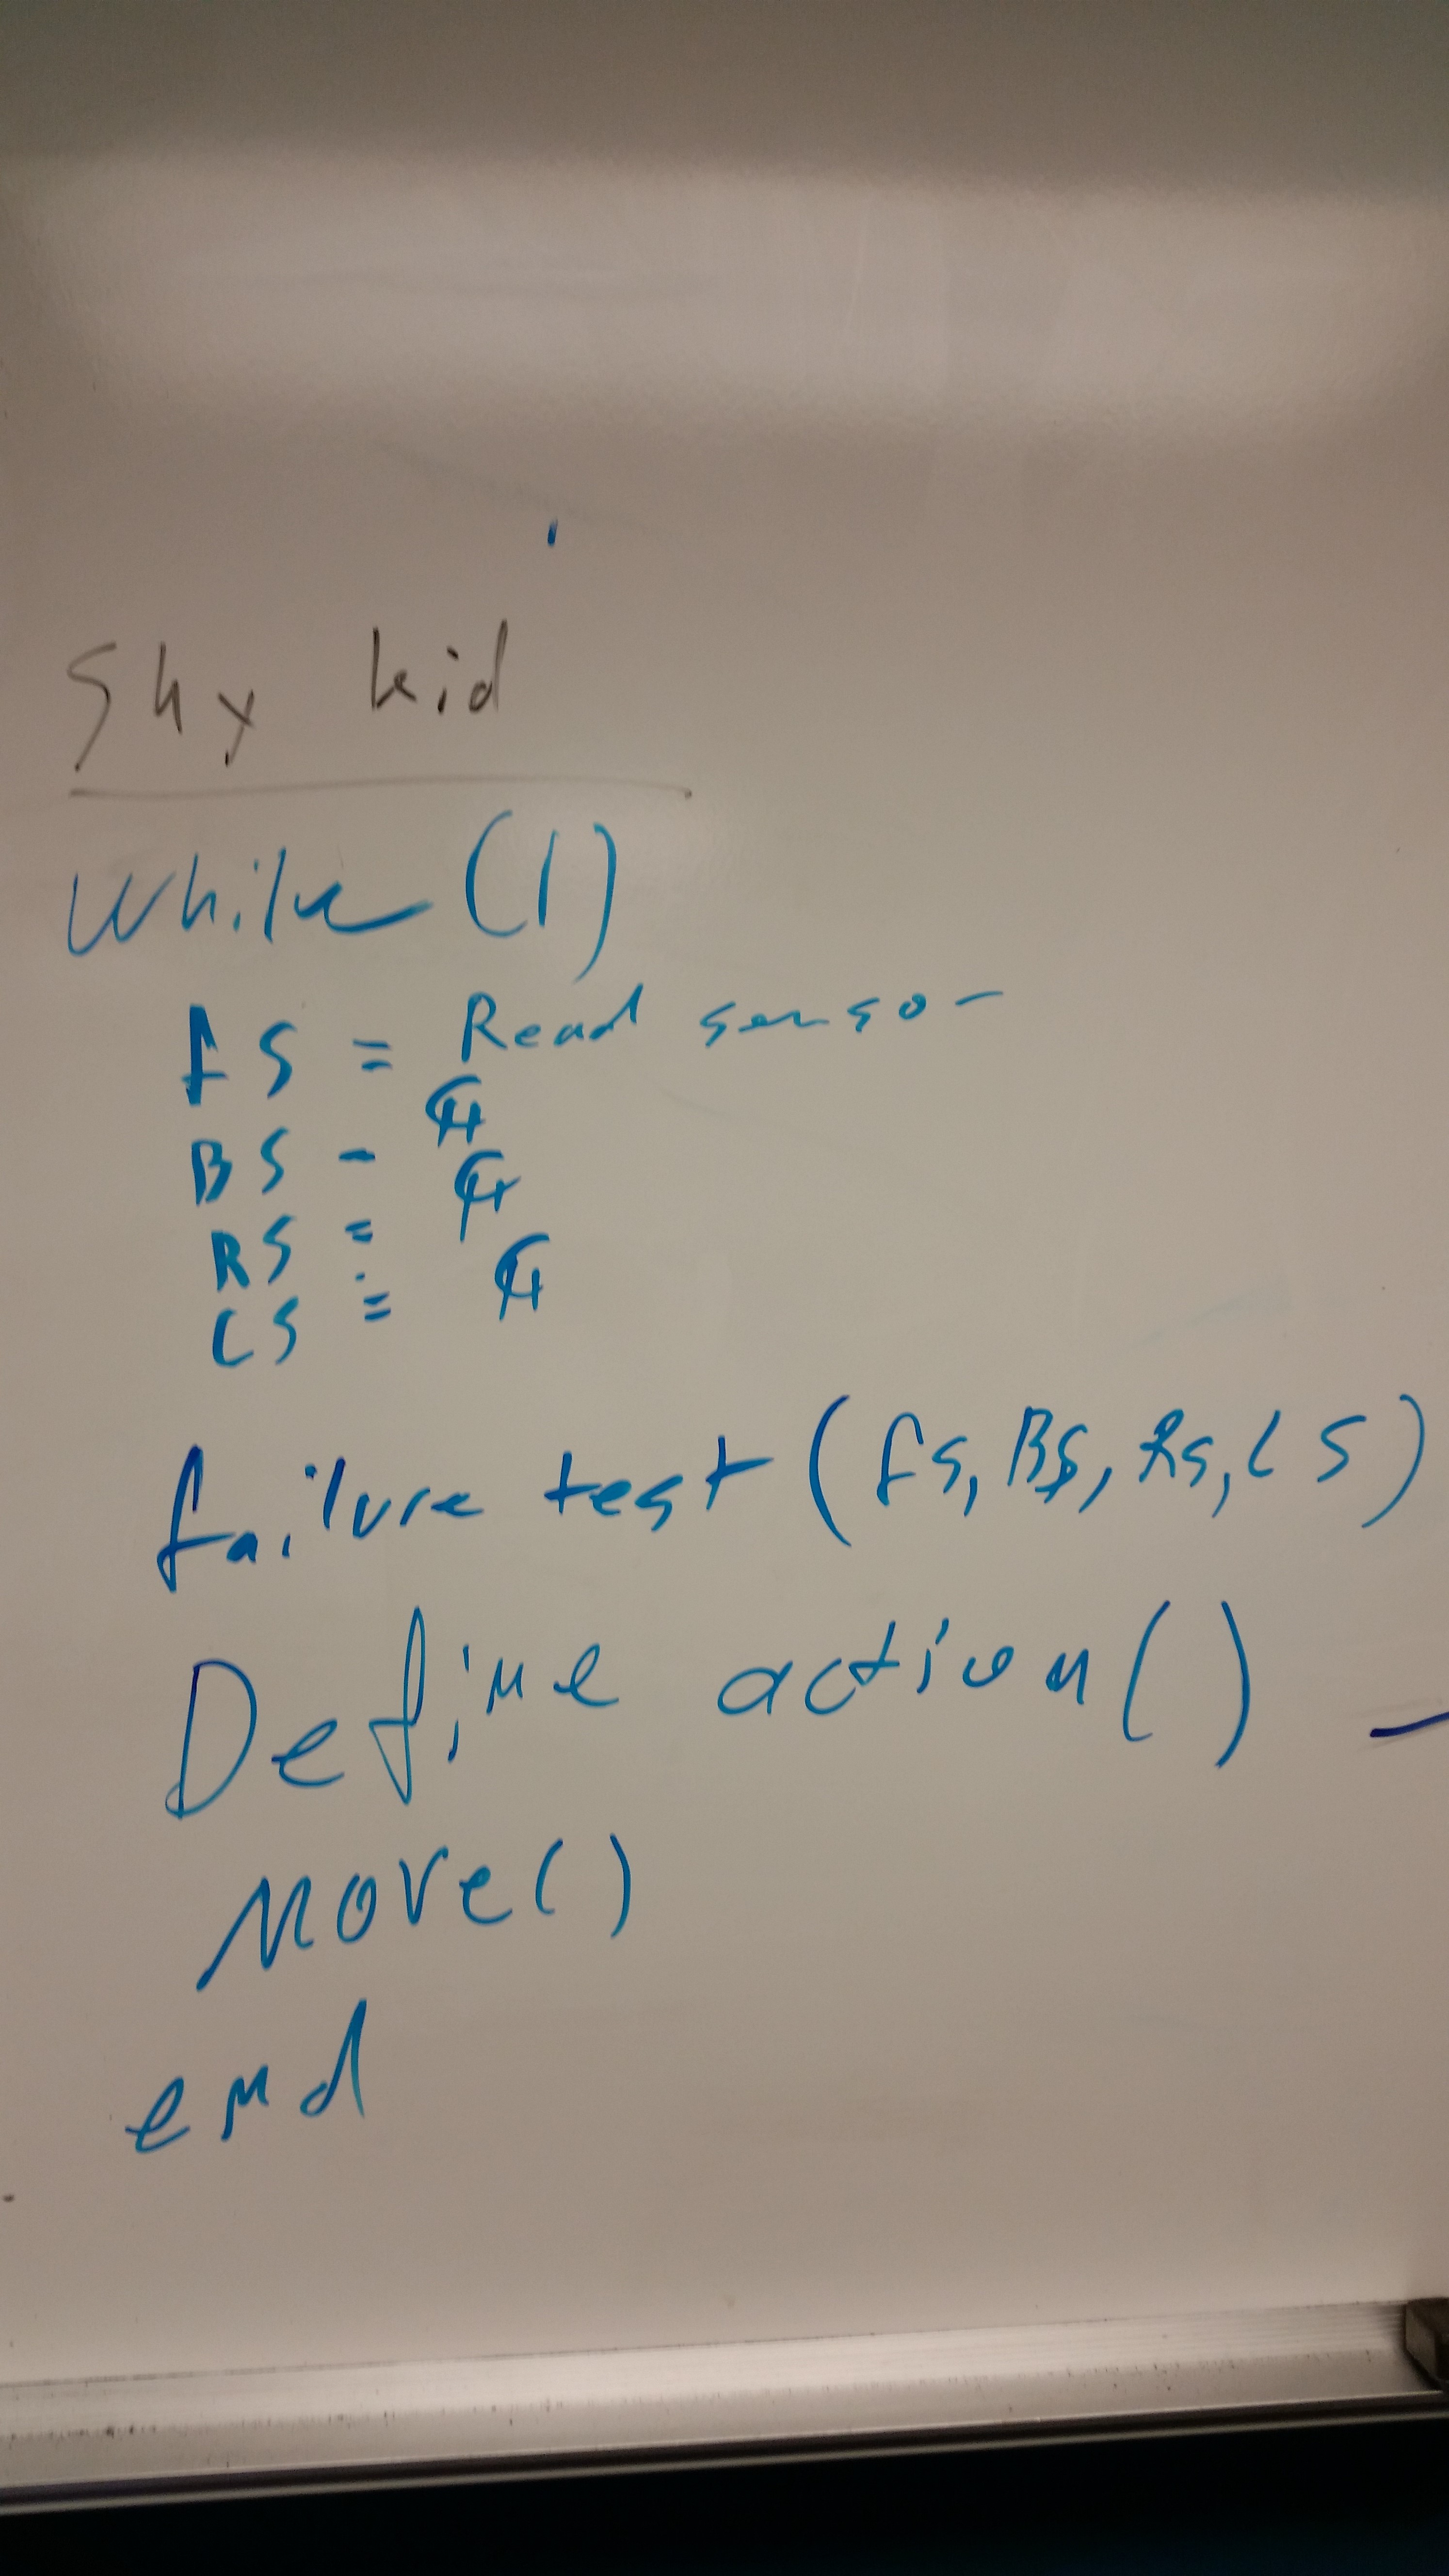 Shy kid
While (1)
FS = Read sensor
BS =
RS =
LS =
failure test (FS, BS, RS, LS)
Define action ()
Move ()
end